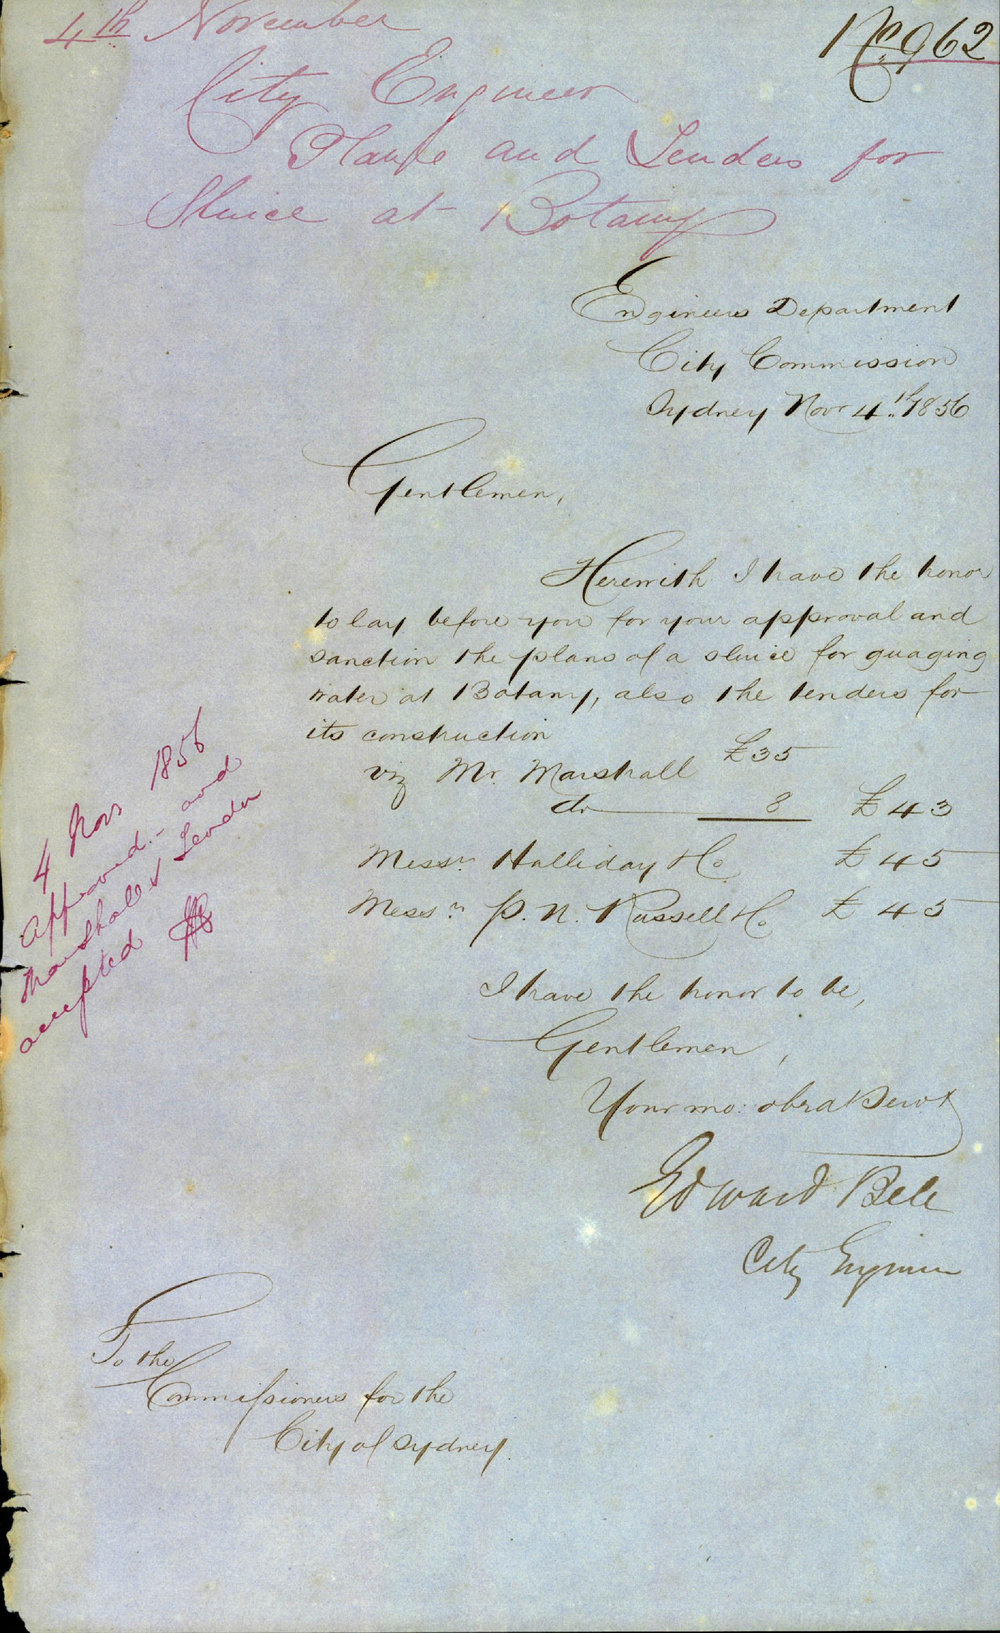 4th November
No 962
City Engineer
Plans and Tenders for
Sluice at Botany
Engineers Department
City Commission
Sydney Novr 4th 1856
Gentlemen,
Herewith I have the honor
to lay before you for your approval and
sanction the plans of a sluice for guaging
water at Botany, also the tenders for
its construction
viz Mr. Marshall £35
do 8 £43
Messrs. Halliday & Co £45
Messrs. P. N. Russell & Co £45
I have the honor to be,
Gentlemen,
Your mo: obed Servt
Edward Bell
City Engineer
4 Novr 1856
Approved.- and
Marshall's Tender
accepted
To the
Commissioners for the
City of Sydney.